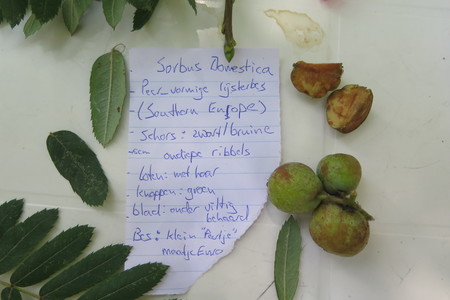 Sorbus Domestica
- Peer vormige lijsterbes
(Southern Europe)
- Schors: zwart/bruine
ondiepe ribbels
- loten: met haar
- knoppen: groen
- blad: onder viltig
behaard
- Bes: klein "Peertje"
maatje Euro